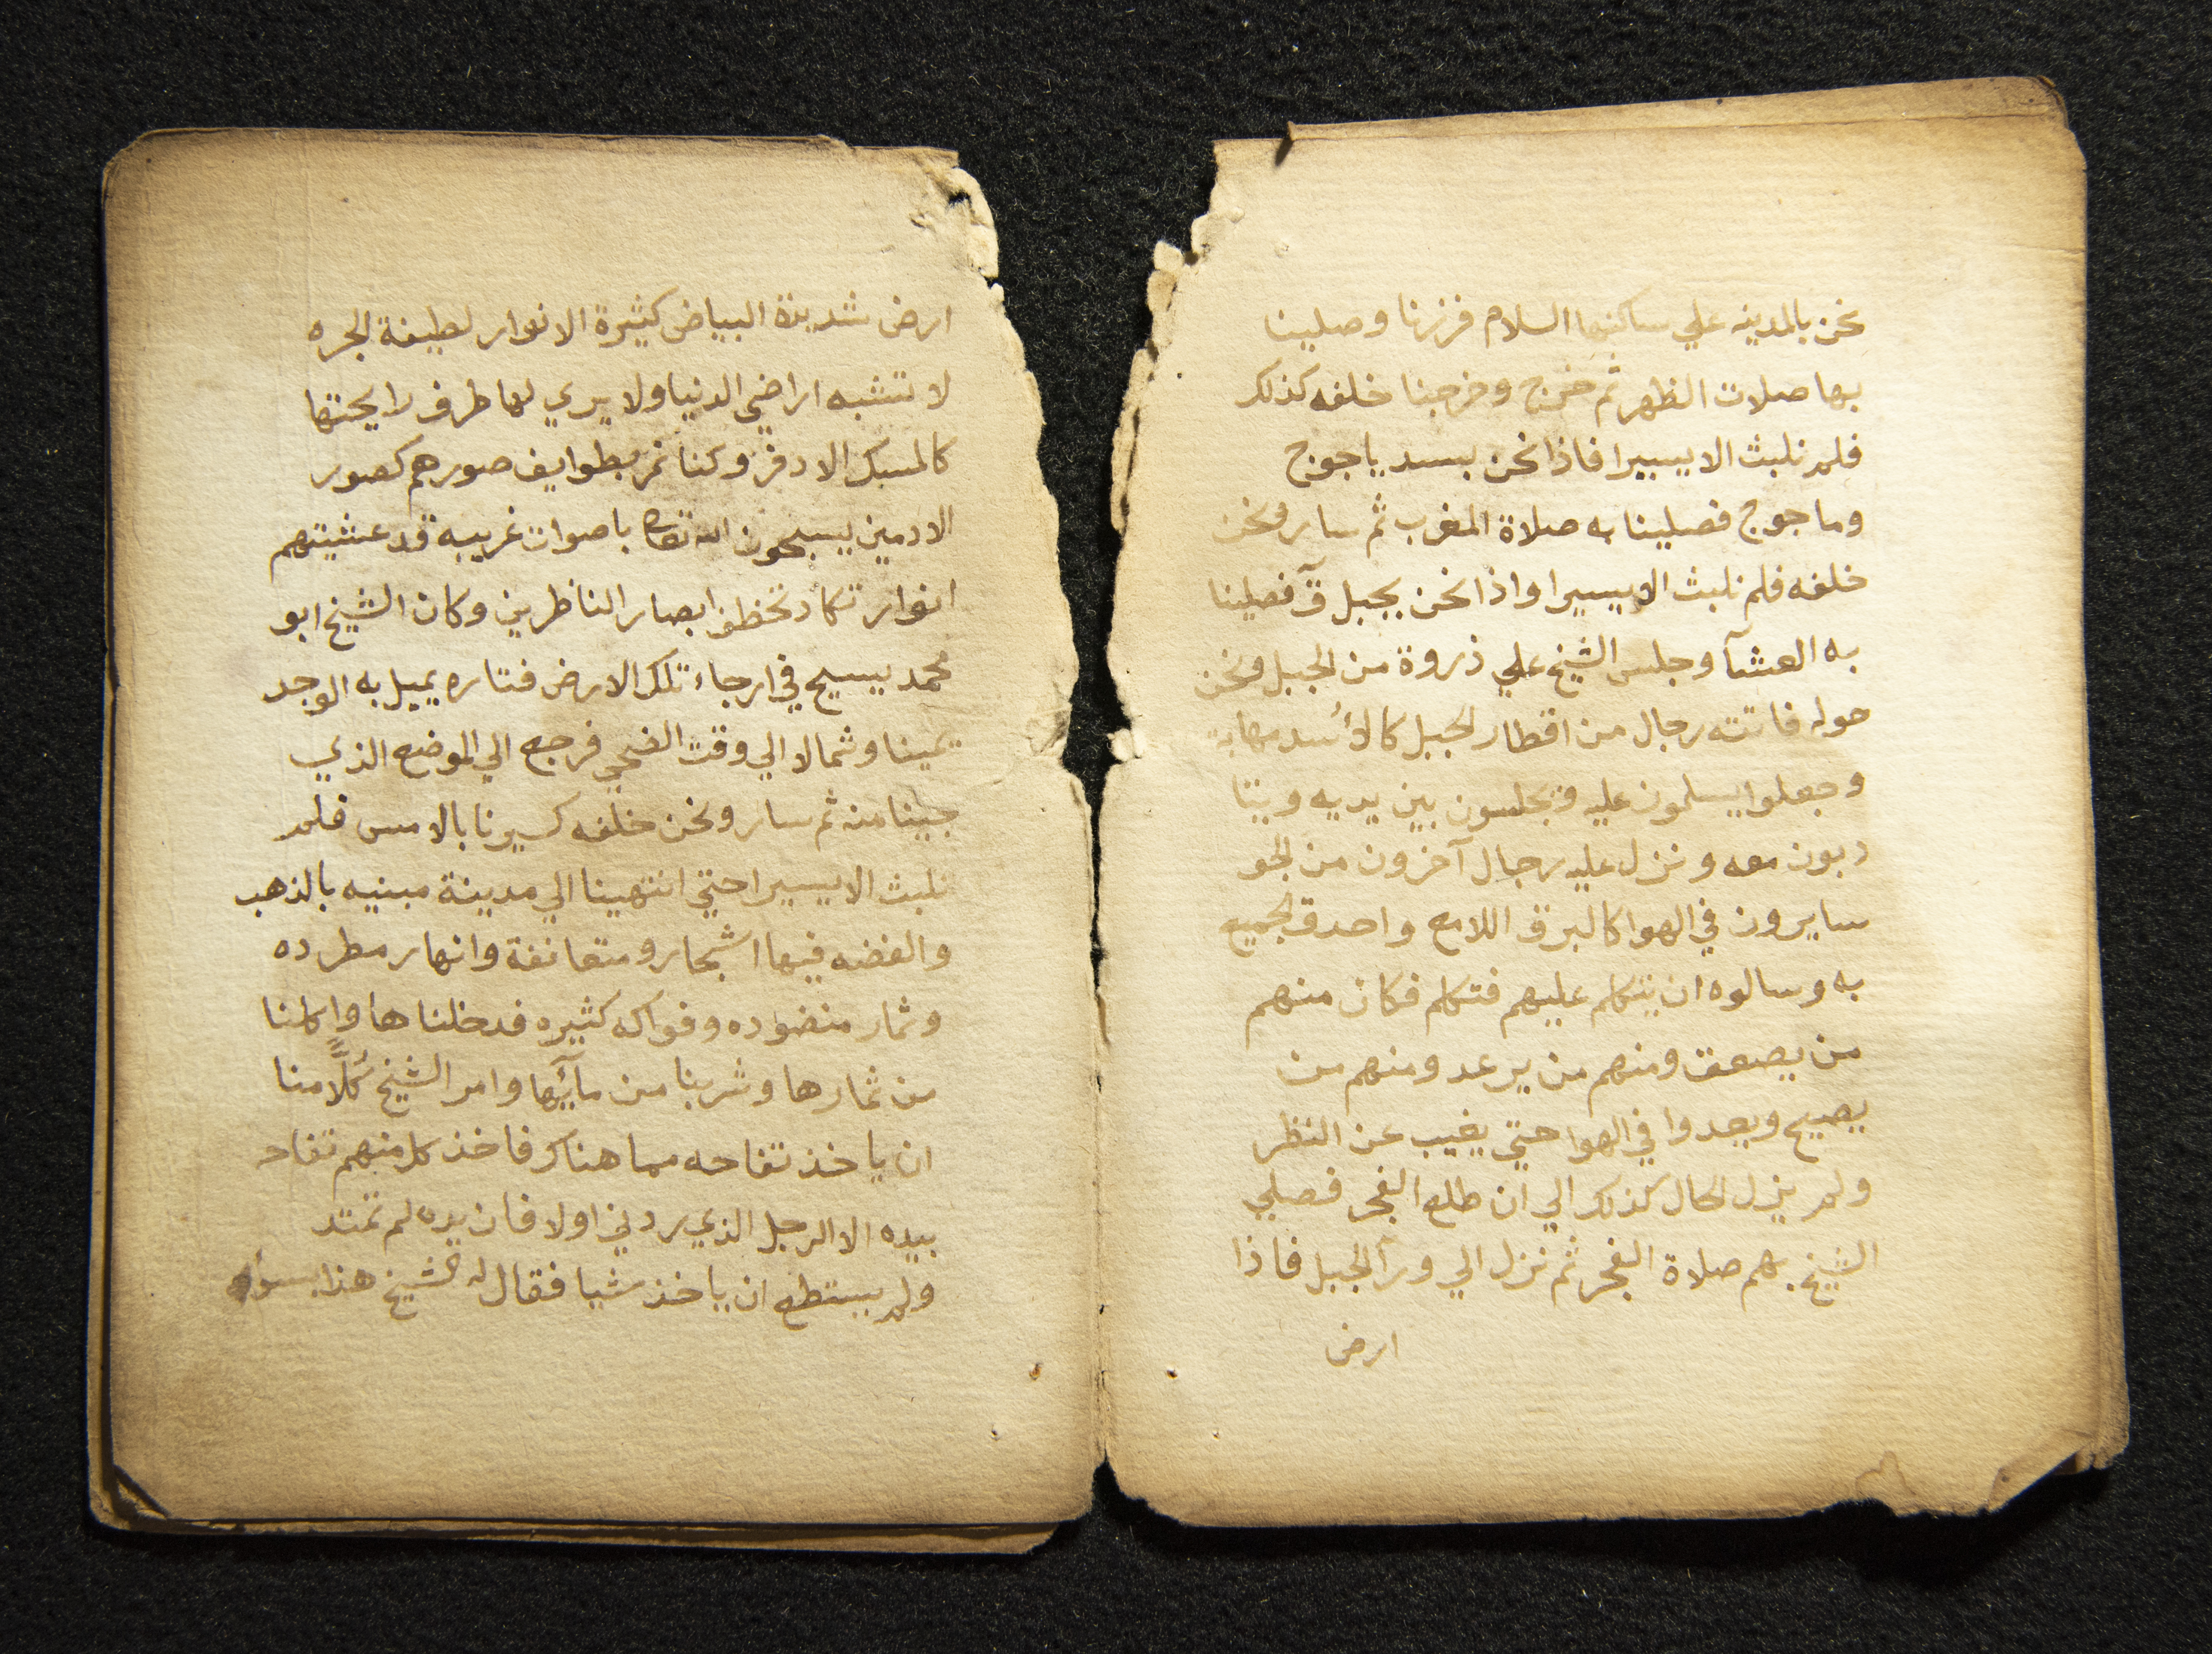 نحن بالمدينه علي ساكنها السلام فزرنا وصلينا
بها صلات الظهر ثم خرج وخرجنا خلفه كذلك
فلم نلبث الا يسيرا فاذا نحن بسد ياجوج
وماجوج فصلينا به صلاة المغرب ثم سار ونحن
خلفه فلم نلبث الا يسيرا واذا نحن بجبل قٓ فصلينا
به العشآ وجلس الشيخ علي ذروة من الجبل ونحن
حوله فاتته رجال من اقطار الجبل كالأسد مهابة
وجعلوا يسلمون عليه ويجلسون بين يديه ويتا
دبون معه ونزل عليه رجال آخرون من الجو
سايرون في الهوا كالبرق اللامع واحدق الجميع
به وسالوه ان يتكلم عليهم فتكلم فكان منهم
من يصعق ومنهم من يرعد ومنهم من
يصيح ويعدوا في الهوا حتي يغيب عن النظر
ولم يزل الحال كذلك الي ان طلع الفجر فصلي
الشيخ بهم صلاة الفجر ثم نزل الي ورآ الجبل فاذا
ارض
ارض شديدة البياض كثيرة الانوار لطيفة الجره
لا تشبه اراضي الدنيا ولا يري لها طرف رايحتها
كالمسك الادفر وكنا نمر بطوايف صورهم كصور
الادمين يسبحون الله تعالى باصوات غريبه قد عشيتهم
انوار تكاد تخطف ابصار الناظرين وكان الشيخ ابو
محمد يسيح في ارجاء تلك الارض فتاره يميل به الوجد
يمينا وشمالا الي وقت الضحي فرجع الي الموضع الذي
جينا منه ثم سار ونحن خلفه كسيرنا بالامس فلم
نلبث الا يسيرا حتي انتهينا الي مدينة مبنيه بالذهب
والفضه فيها اشجار ومتعانقة وانهار مطرده
وثمار منضوده وفواكه كثيره فدخلناها واكلنا
من ثمارها وشربنا من مآيها وامر الشيخ كُلًّا منا
ان ياخذ تفاحه مما هناك فاخذ كل منهم تفاحه
بيده الا الرجل الذي ردني اولا فان يده لم تمتد
ولم يستطع ان ياخذ شيا فقال له الشيخ هذا بسوء